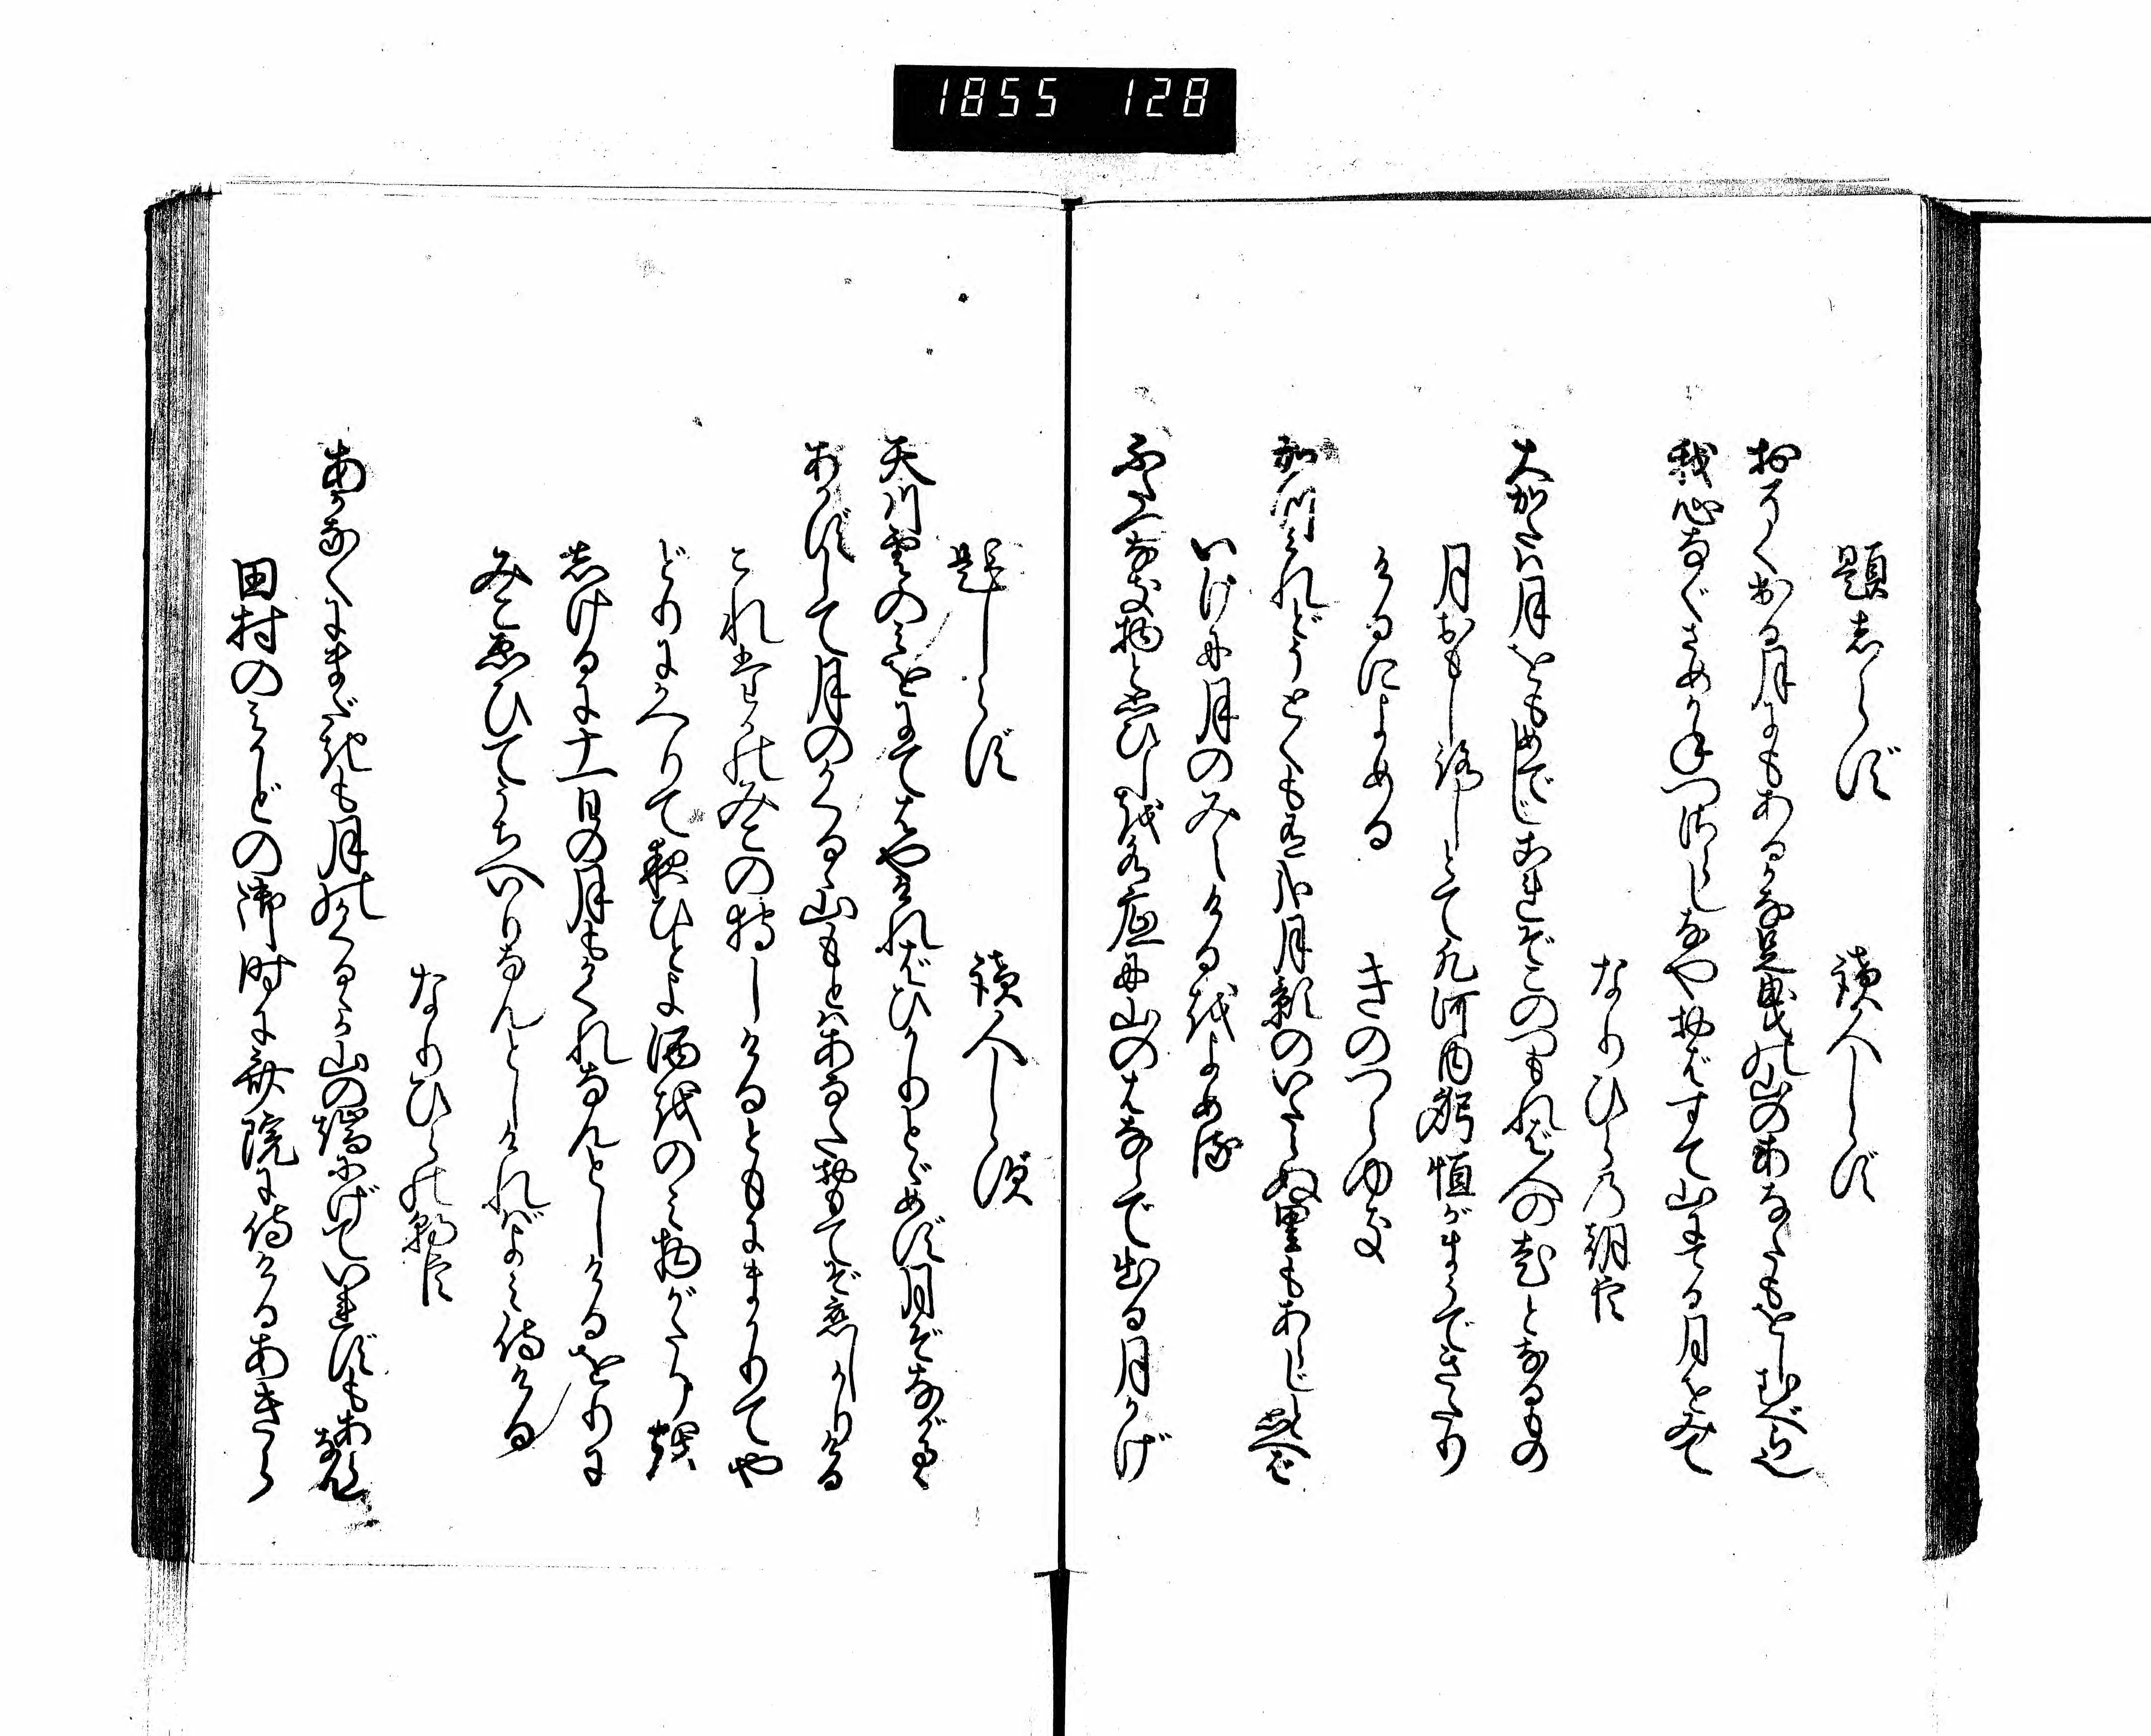 1855 128
題しらず 讀人しらず
おそく出る月にもあるかな足曳の山のあなたもをしむべら也
我心なぐさめかねつさらしなやおばすて山にてる月をみて
なりひらの朝臣
大かたは月をもめでじこれぞこのつもれば人の老となるもの
月おもしろしとて凡河内躬恒がまうできたり
けるによめる きのつらゆき
かつみれどうとくもあるかな月影のいたらぬ里もあらじと思へば
いけに月のみえけるをよめる
ふたつなき物と思ひしを水底に山のはならで出る月かげ
題しらず 讀人しらず
天川雲のみをにてはやければひかりとゞめず月ぞながるゝ
あかずして月のかくるゝ山もとはあなたおもてぞ恋しかりける
これたかのみこの狩しけるともにまかりてや
どりにかへりて夜ひとよ酒をのみ物がたりを
しけるに十一日の月もかくれなんとしけるをりに
みこゑひてうちへいりなんとしければよみ侍ける
なりひらの朝臣
あかなくにまだきも月のかくるゝか山の端にげていれずもあらなん
田村のみかどの御時に斎院に侍けるあきら